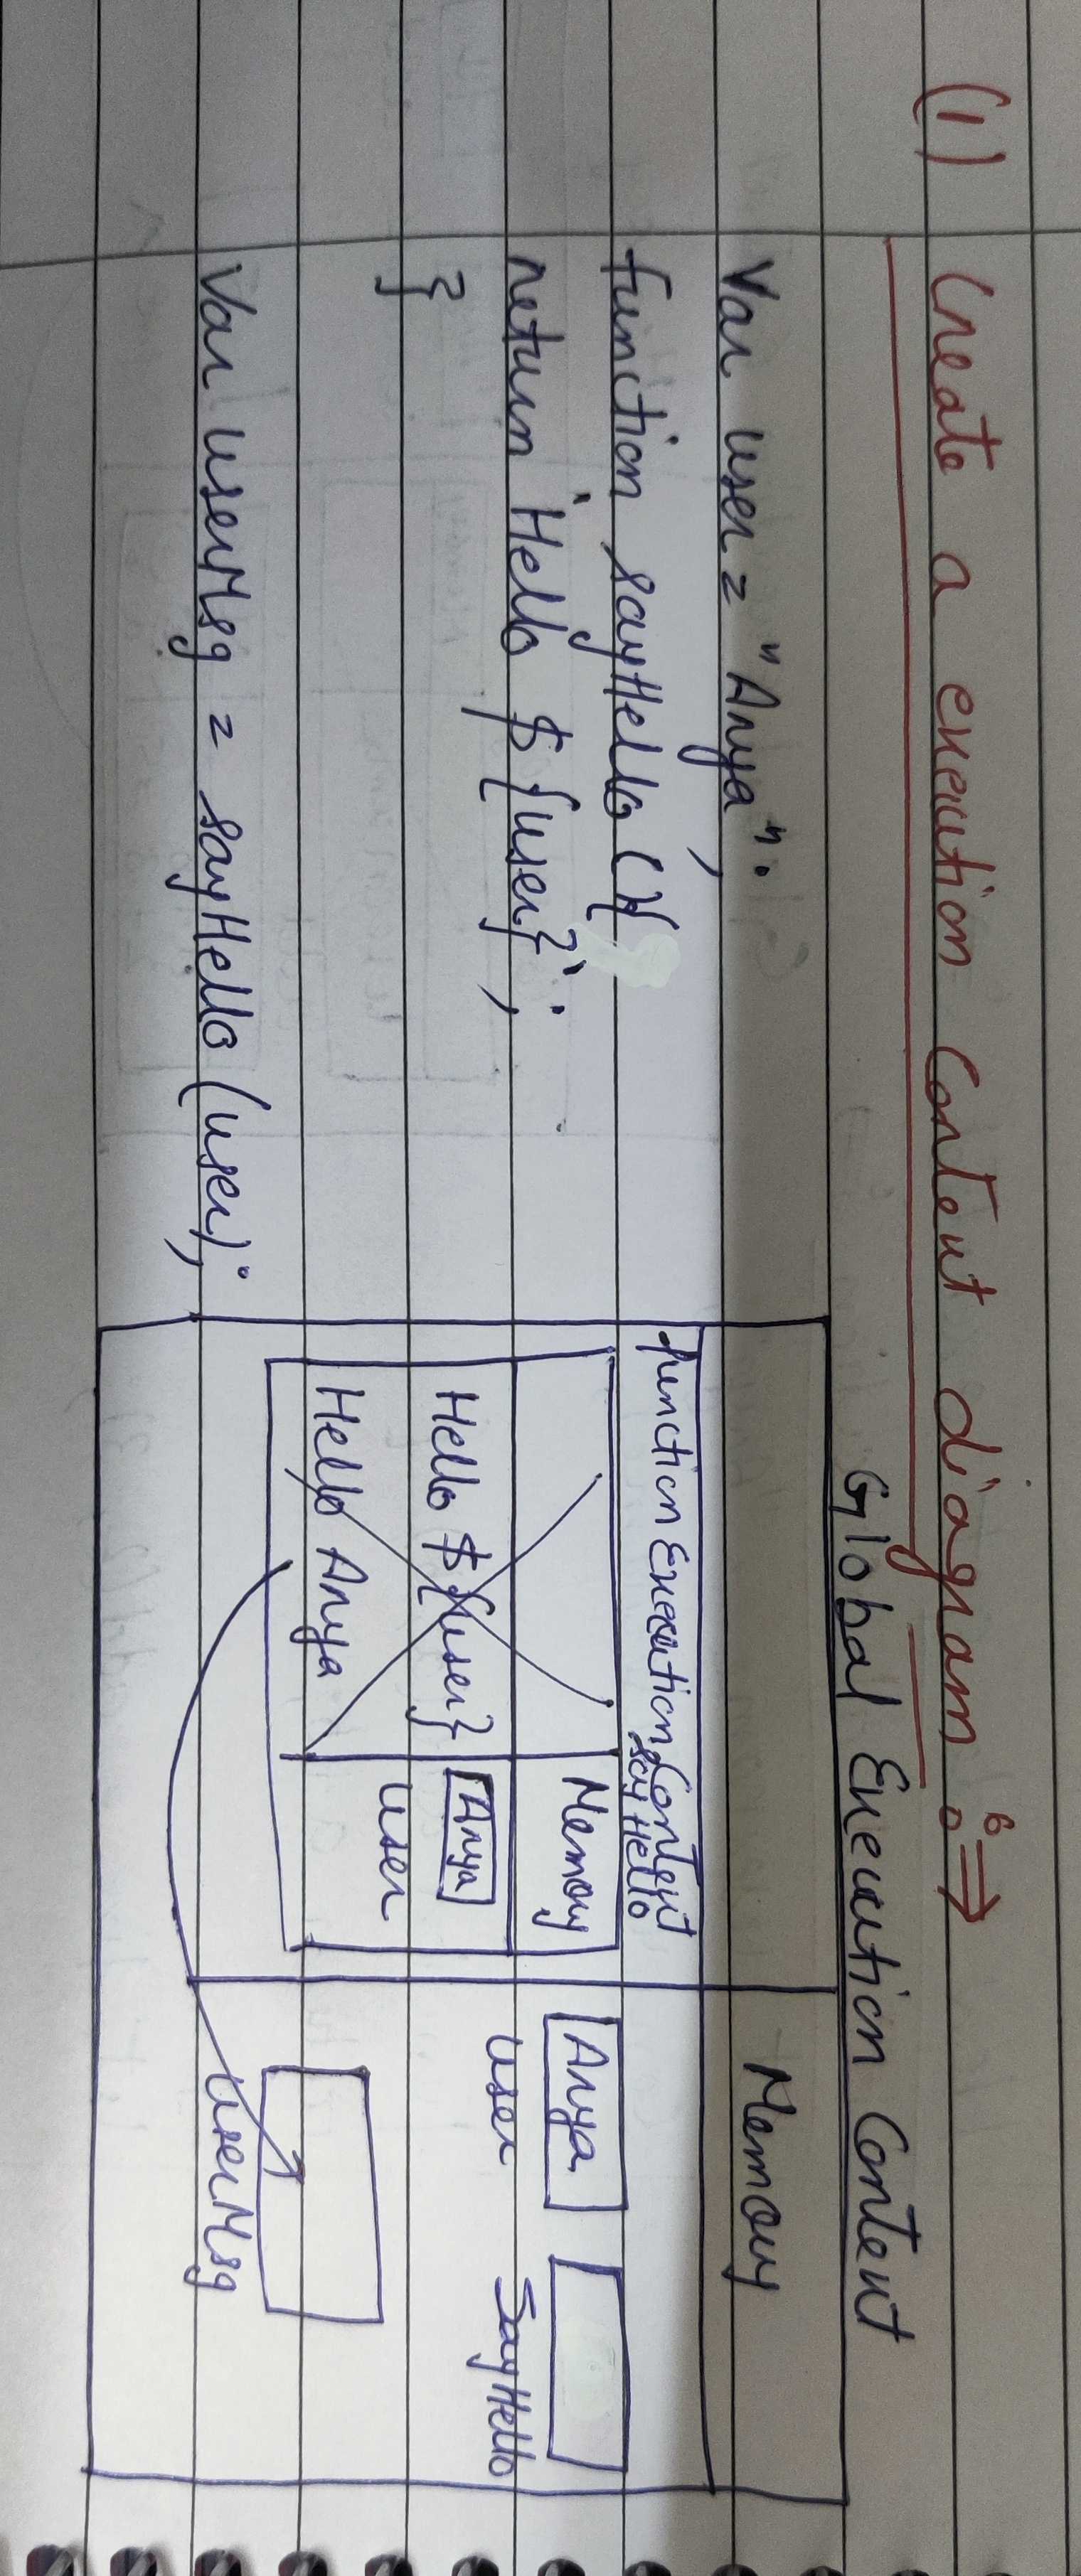 (1) Create a execution context diagram :⇒
Var user = "Anya";
function sayHello () {
return `Hello ${user}`;
}
Var userMsg = sayHello (user);
Global Execution Context
Memory
function Execution Context
sayHello
Memory
Hello ${user}
Anya
user
Hello Anya
Anya
user
SayHello
userMsg